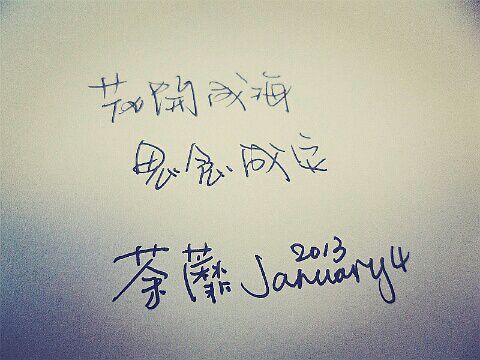 花開成海
思念成灾
2013
荼蘼 January 4